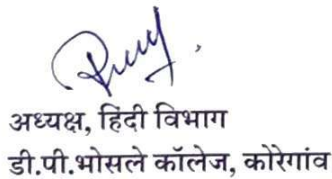 अध्यक्ष, हिंदी विभाग
डी.पी.भोसले कॉलेज, कोरेगांव